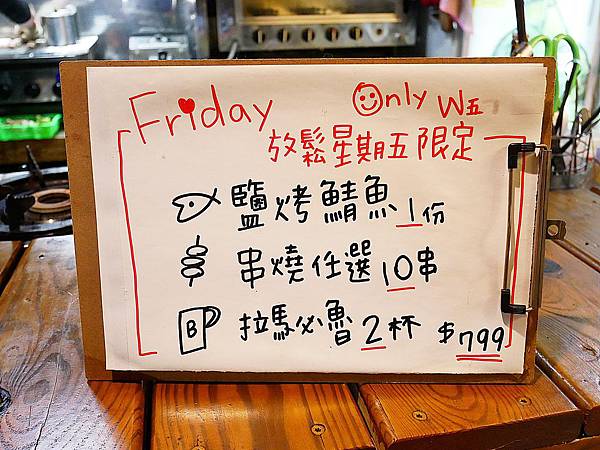 Friday
Only W五
放鬆星期五限定
鹽烤鯖魚1份
串燒任選10串
B
拉馬必魯2杯 $799